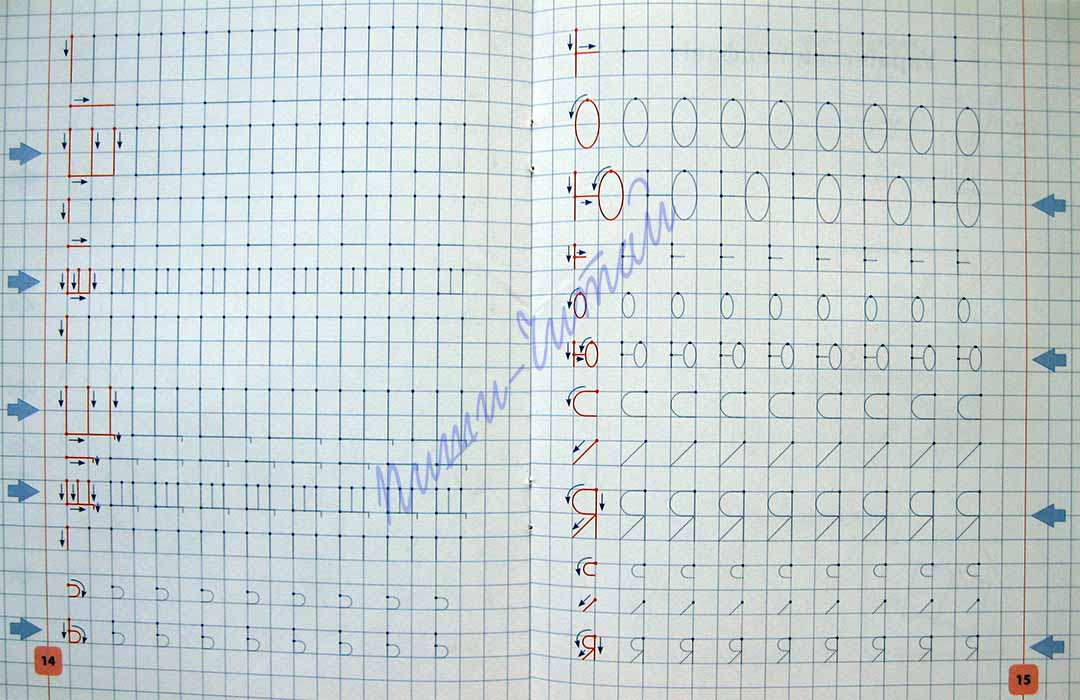 Ш Ш Ш Ш Ш Ш
ш ш ш ш ш ш ш ш ш
Щ Щ Щ Щ Щ Щ
щ щ щ щ щ щ щ щ щ
ь ь ь ь ь ь ь ь ь
14
Ю Ю Ю Ю Ю Ю
ю ю ю ю ю ю ю ю ю
Я Я Я Я Я Я Я Я Я
я я я я я я я я я
15
пиши-читай